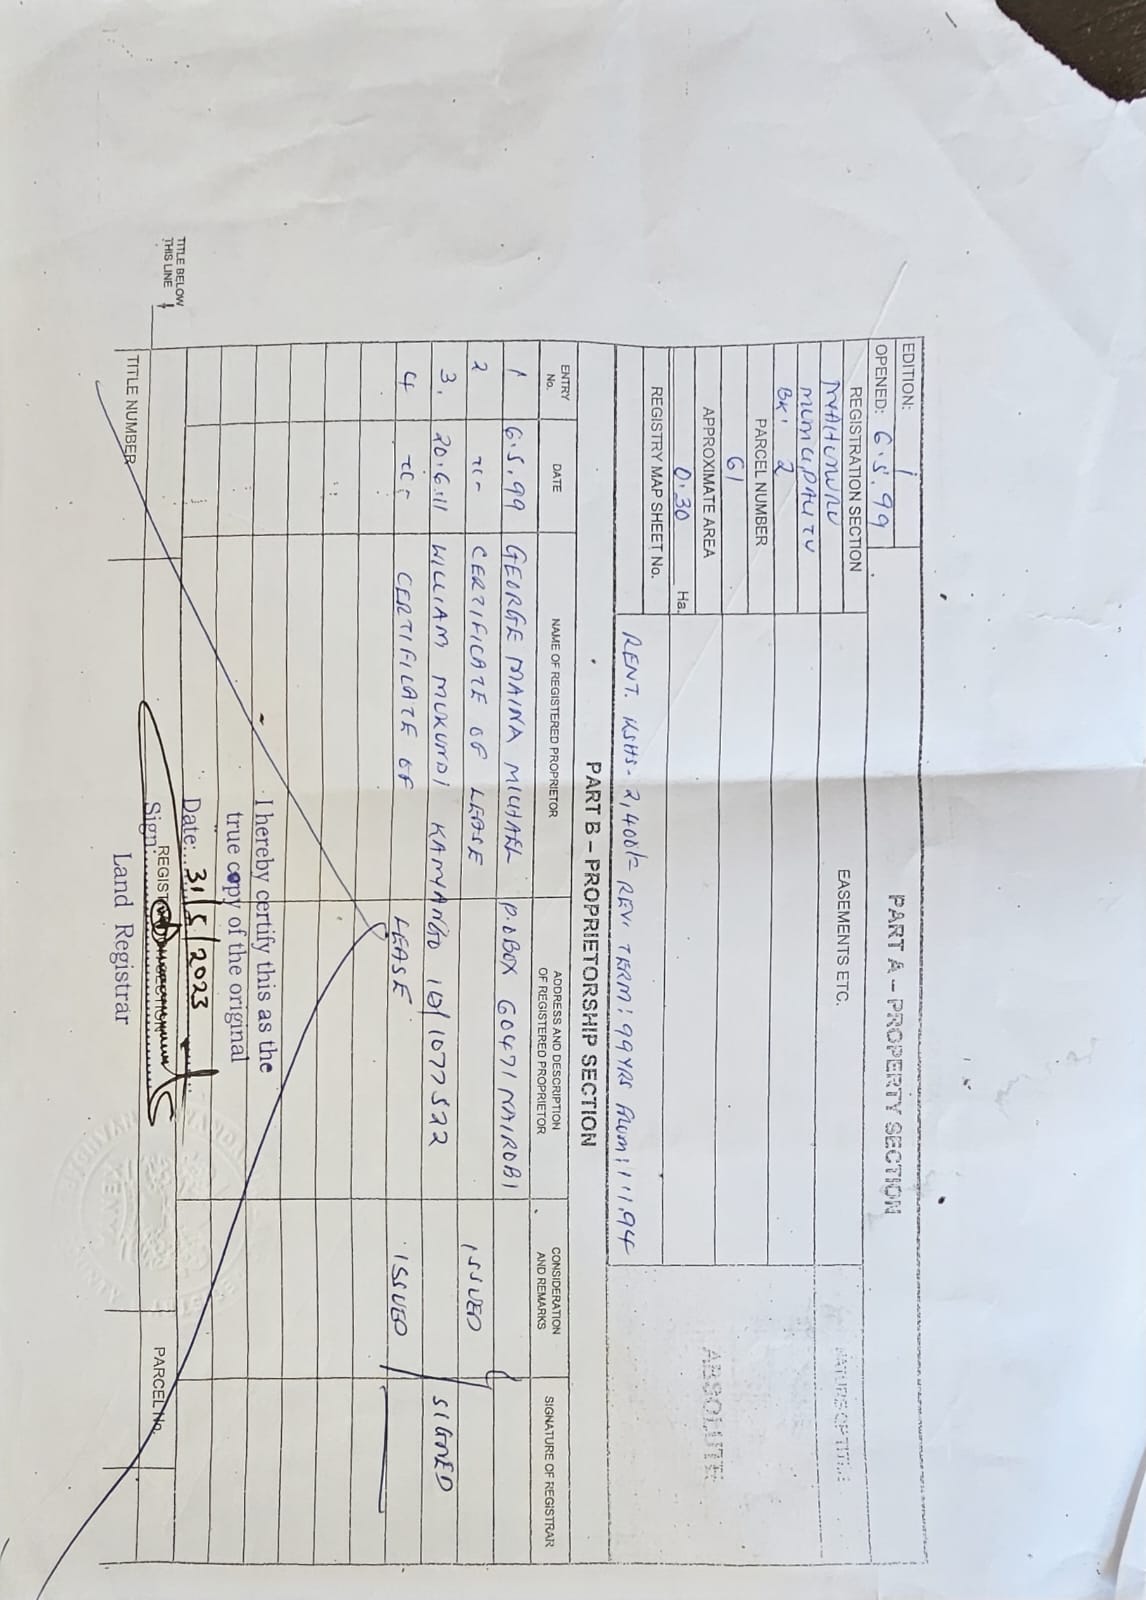 EDITION: 1
OPENED: 6.5.99
PART A – PROPERTY SECTION
REGISTRATION SECTION
EASEMENTS ETC.
NATURE OF TITLE
NYAHURURU
MUNICIPALITY
BK. 2
PARCEL NUMBER
61
ABSOLUTE
APPROXIMATE AREA
0.30 Ha.
REGISTRY MAP SHEET No.
RENT. KSHS. 2,400/= REV. TERM: 99 YRS FROM: 1.1.94
PART B – PROPRIETORSHIP SECTION
ENTRY No.
DATE
NAME OF REGISTERED PROPRIETOR
ADDRESS AND DESCRIPTION OF REGISTERED PROPRIETOR
CONSIDERATION AND REMARKS
SIGNATURE OF REGISTRAR
1 6.5.99 GEORGE MAINA MICHAEL P.O BOX 60471 NAIROBI
2 CERTIFICATE OF LEASE ISSUED
3. 20.6.11 WILLIAM MUKUNDI KAMYANGO ID/1077522 SIGNED
4 CERTIFICATE OF LEASE ISSUED
I hereby certify this as the
true copy of the original
Date: 31/5/2023
Sign:
Land Registrar
TITLE BELOW
THIS LINE
TITLE NUMBER
PARCEL No.